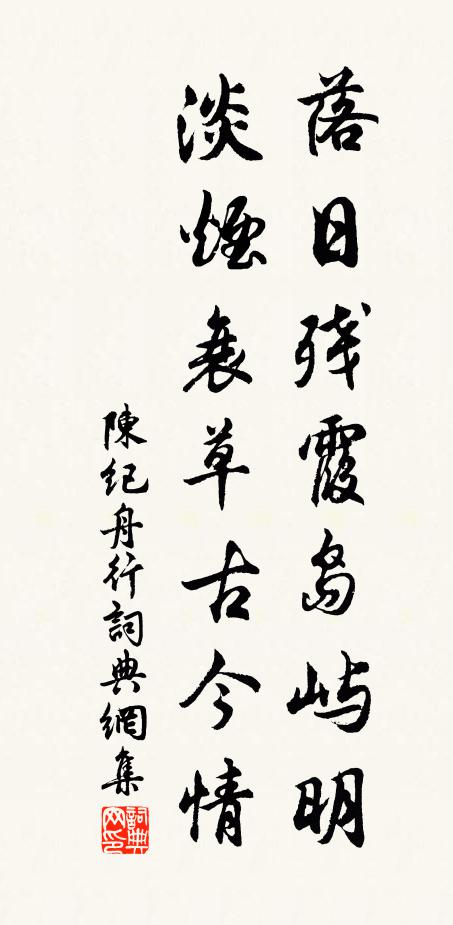 落日殘霞島嶼明
淡煙衰草古今情
陳紀舟行詞典網集
詞典網印